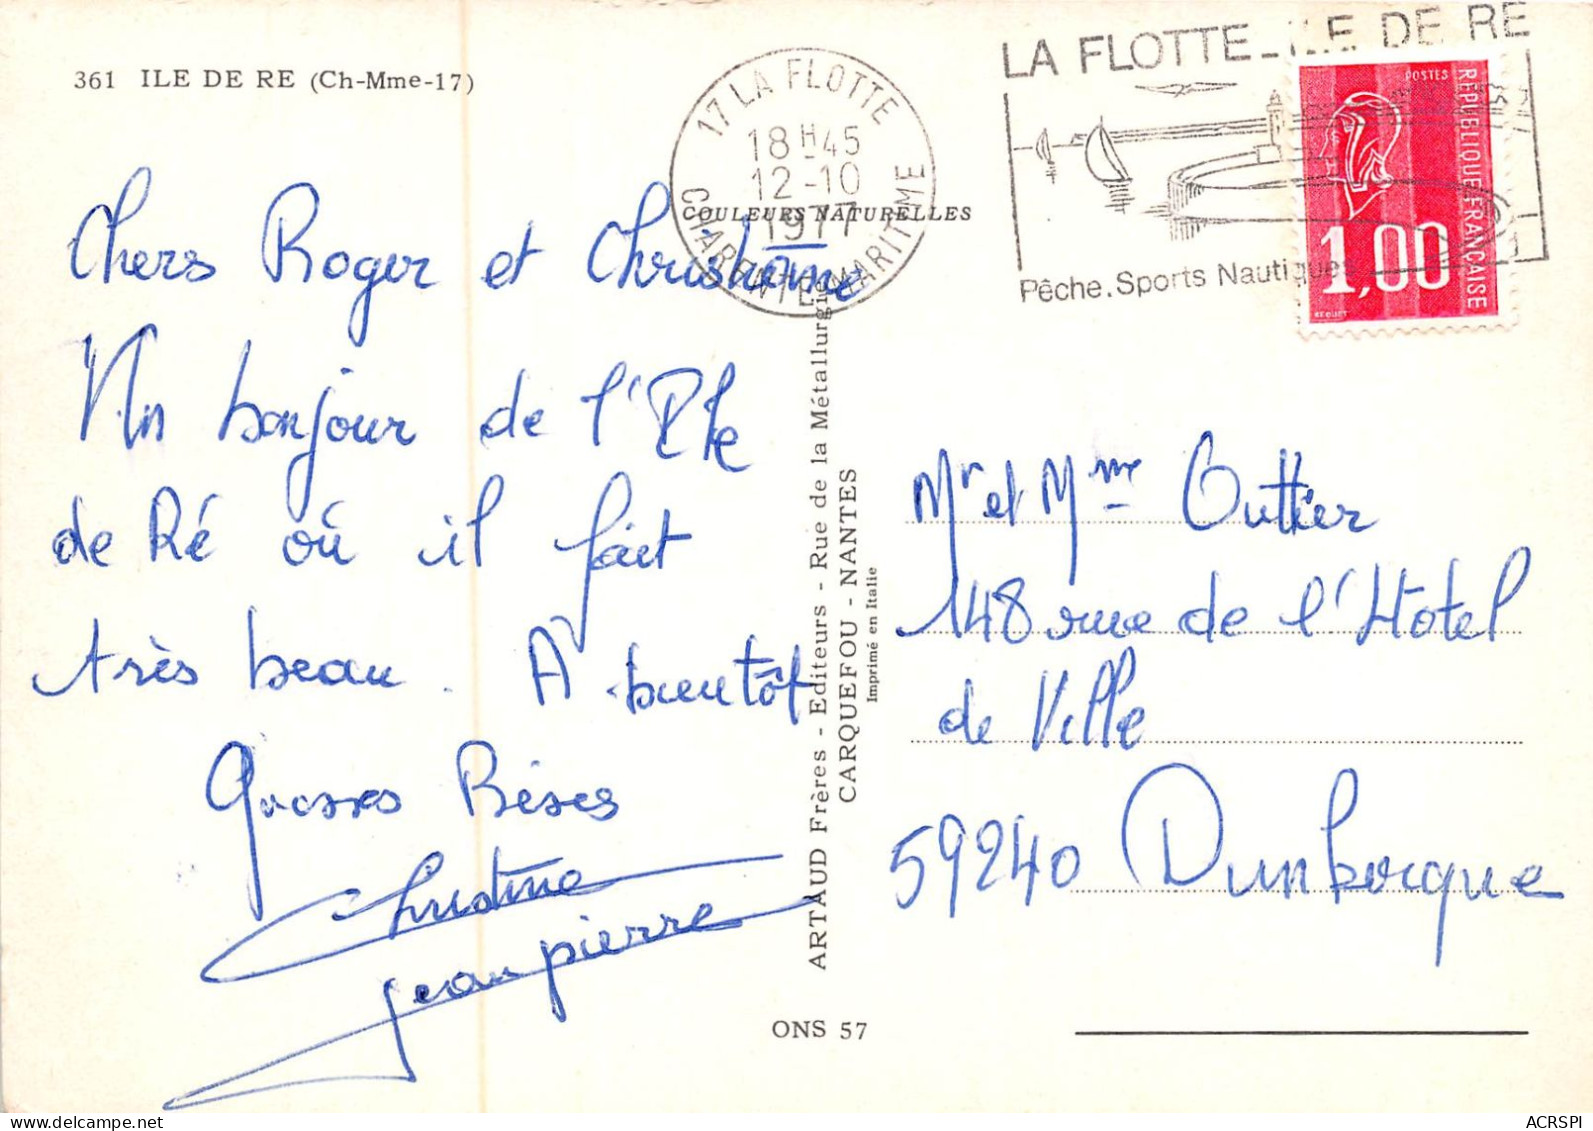 361 ILE DE RE (Ch-Mme-17)
17 LA FLOTTE
18H45
12-10
1977
CHARENTE-MARITIME
LA FLOTTE-ILE DE RE
Pêche.Sports Nautiques
POSTES
REPUBLIQUE FRANÇAISE
1,00
BEQUET
COULEURS NATURELLES
Chers Roger et Christiane
Un bonjour de l'Ile
de Ré où il fait
très beau. A bientôt
Grosses Bises
Christine
jean pierre
ARTAUD Frères - Editeurs - Rue de la Métallurgie
CARQUEFOU - NANTES
Imprimé en Italie
ONS 57
Mr et Mme Outtier
148 rue de l'Hotel
de Ville
59240 Dunkerque
delcampe.net
ACRSPI